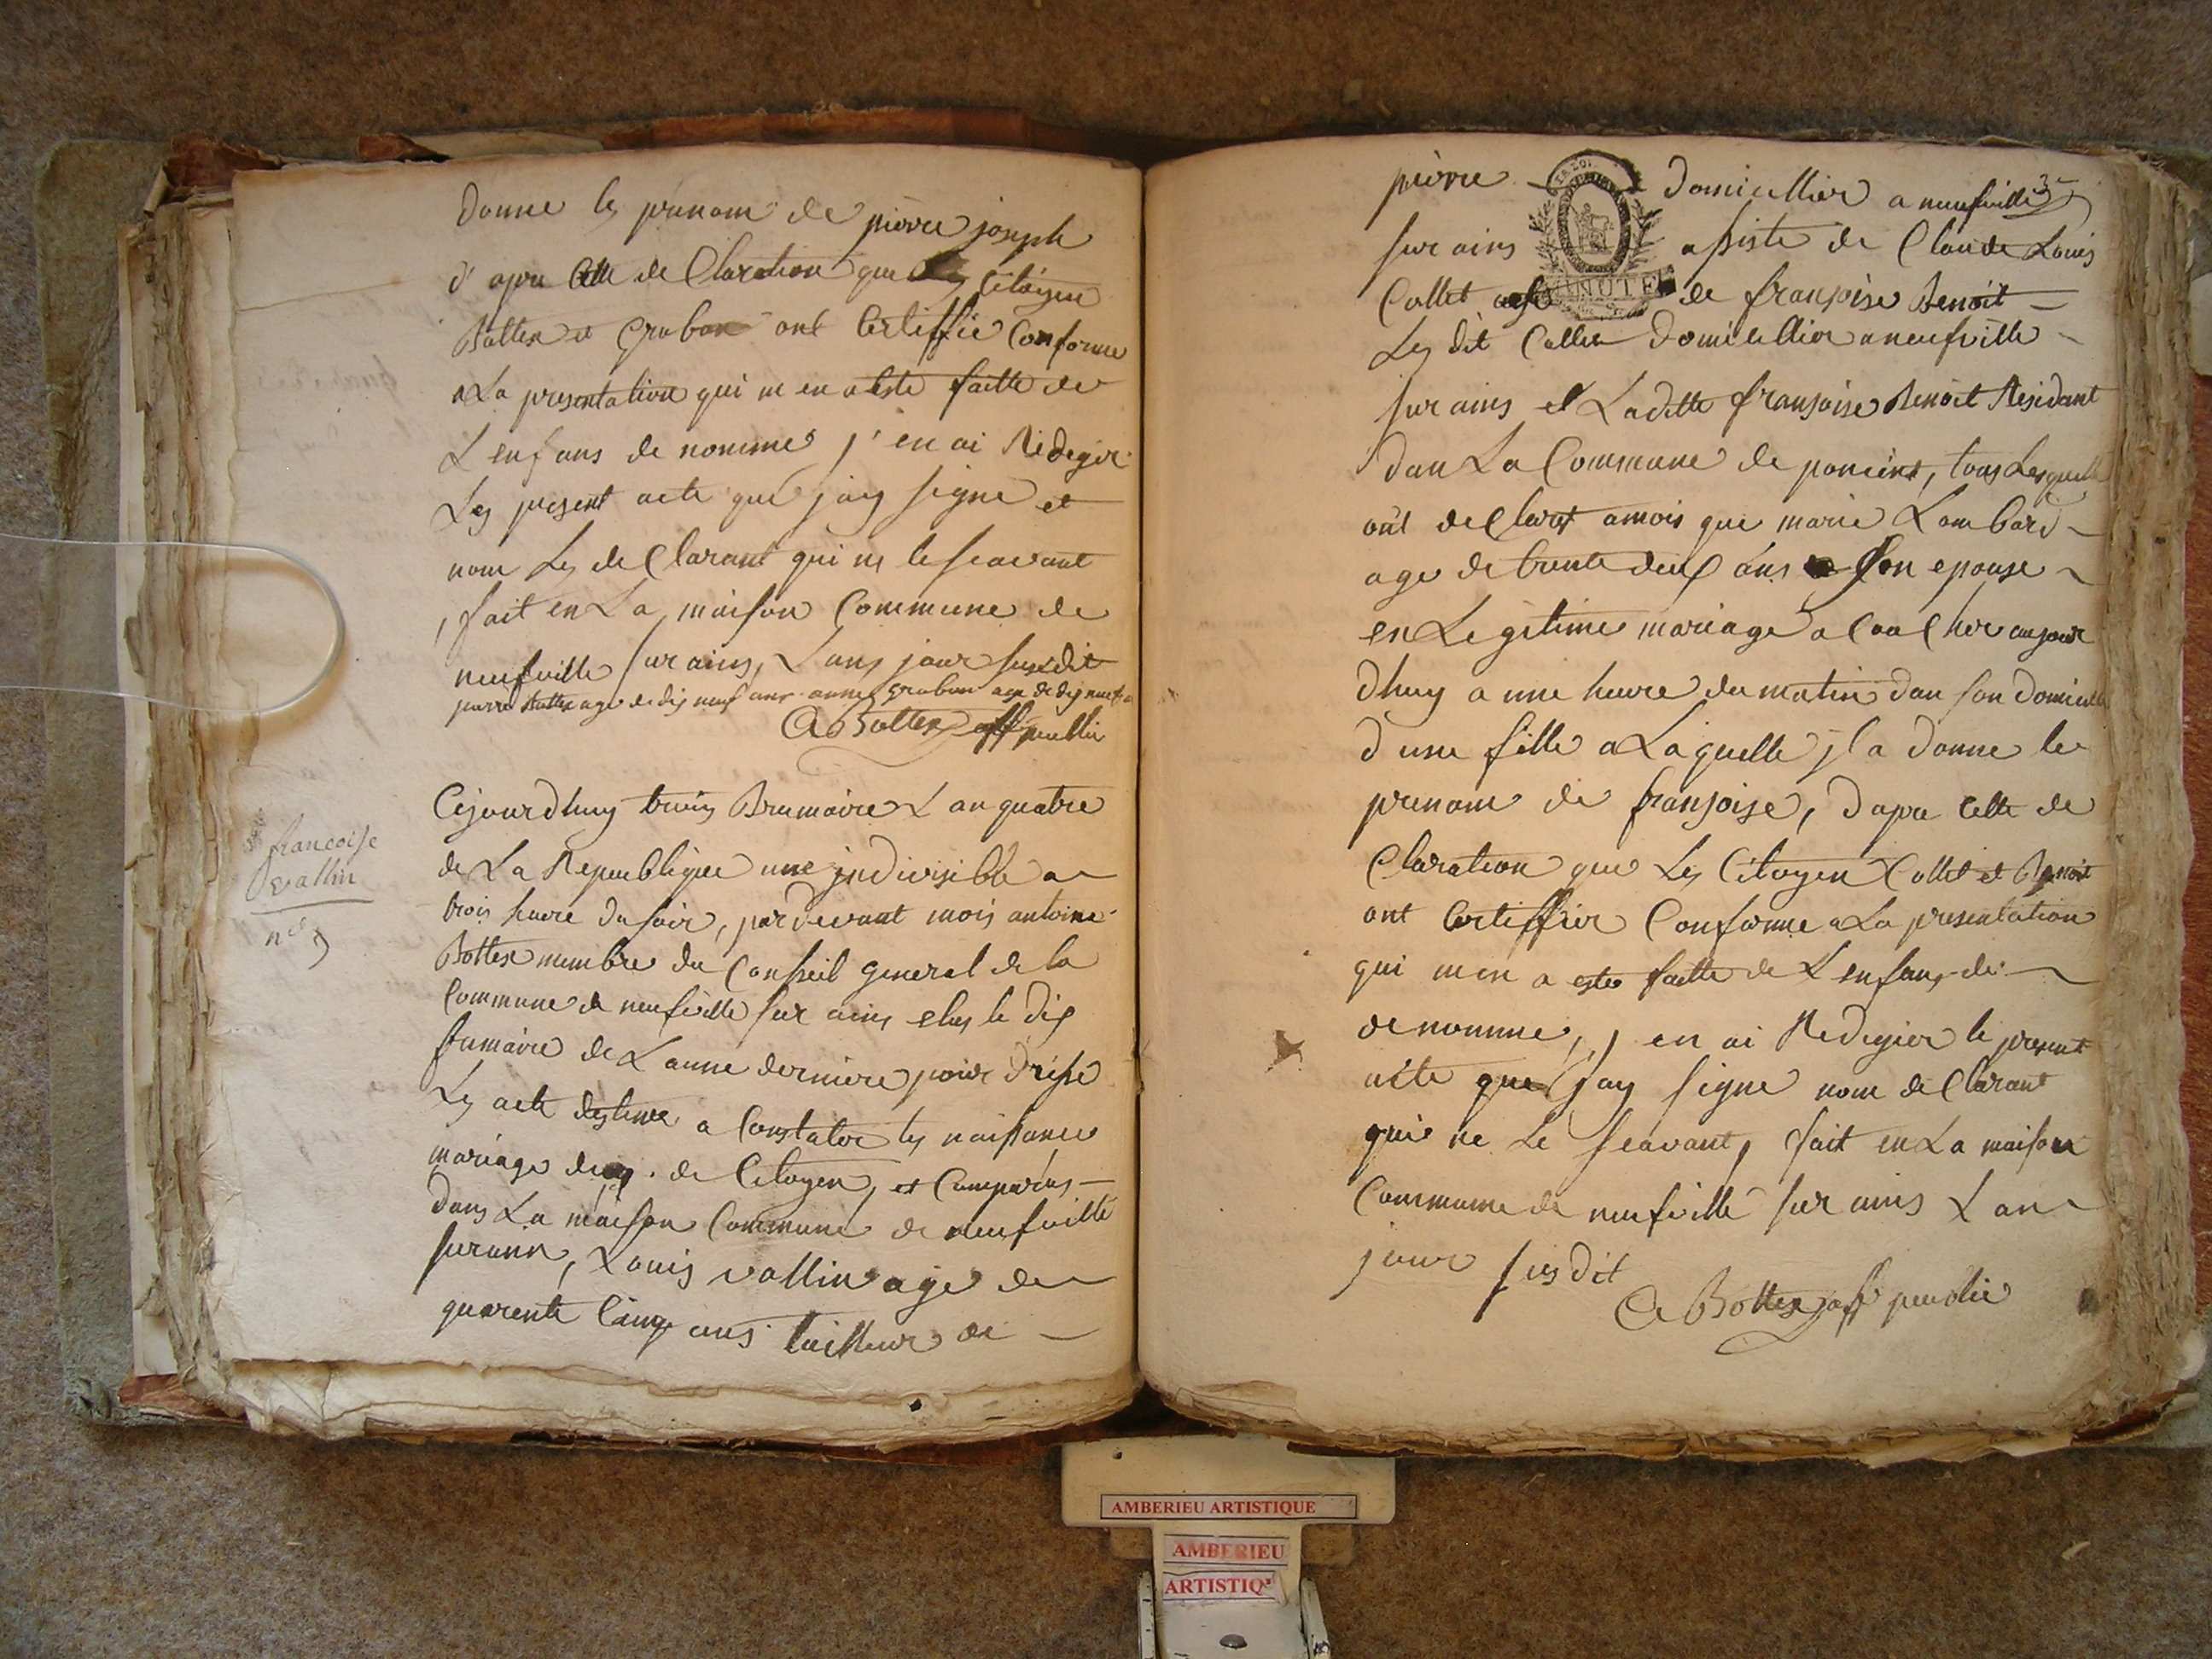 donne les prenom de pierre joseph
d'apre cette de Claration que les Citoyen
Bottex et Grabou ont Certiffie Conforme
a La presentation qui m en a este faitte de
L enfans de nomme j'en ai Redegir
Les present acte que jay signe et
nom Les de Clarant qui ne le scavant
, fait en La maison Commune de
neufville sur ains, L ans jour susdit
pierre Bottex age de dix neuf ans anne Grabou age de dix neuf a
A Bottex off publie
Cejourdhuy trois Brumaire L an quatre
de La Republique une jndivisible a
trois heure du soir, par devant mois antoine
Bottex membre du Conseil general de la
Commune de neufville sur ains elus le dix
frimaire de L anne derniere pour drésse
Les acte destine a Constater les naissance
mariage de Citoyen, et Comparus
dans La maison Commune de neufville
sur ain, Louis vallin age de
quarente Cainq ans tailleur de
francoise
vallin
née
3e
pierre domicillier a neufville
sur ains assiste de Claude Louis
Collet de françoise Benoit
Les dit Collet domicillier a neufville
sur ains et Laditte fransoise Benoit Residant
dan La Commune de poncins, tous Lesquelle
ont de Clarer a mois que marie Lombard
age de trente deux ans son epouse
en Legitime mariage a Cou Cher aujour
dhuy a une heure du matin dan son domicille
d une fille a Laquelle jl a donne le
prenom de fransoise, d apre cette de
Claration que Les Citoyen Collet et Benoit
ont Certiffier Conforme a La presentation
qui m en a este faitte de L enfans de
denomme, j en ai Redegier le present
acte que jay signe nom de Clarant
qui ne Le scavant, fait en La maison
Commune de neufville sur ains L an
jour sus dit
A Bottex off publie
LA LOI
MINUTE
AMBERIEU ARTISTIQUE
AMBERIEU
ARTISTIQ